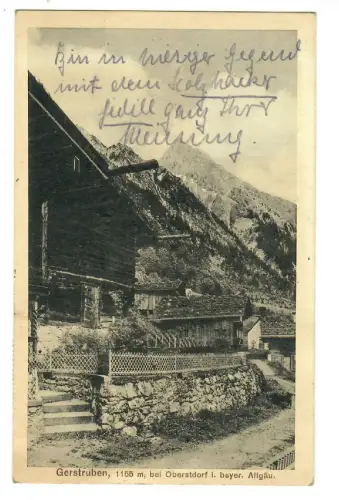 Bin in dieser Gegend
mit dem Holzhacker
fidill ganz Ihr
Meinung,
Gerstruben, 1155 m, bei Oberstdorf i. bayer. Allgäu.